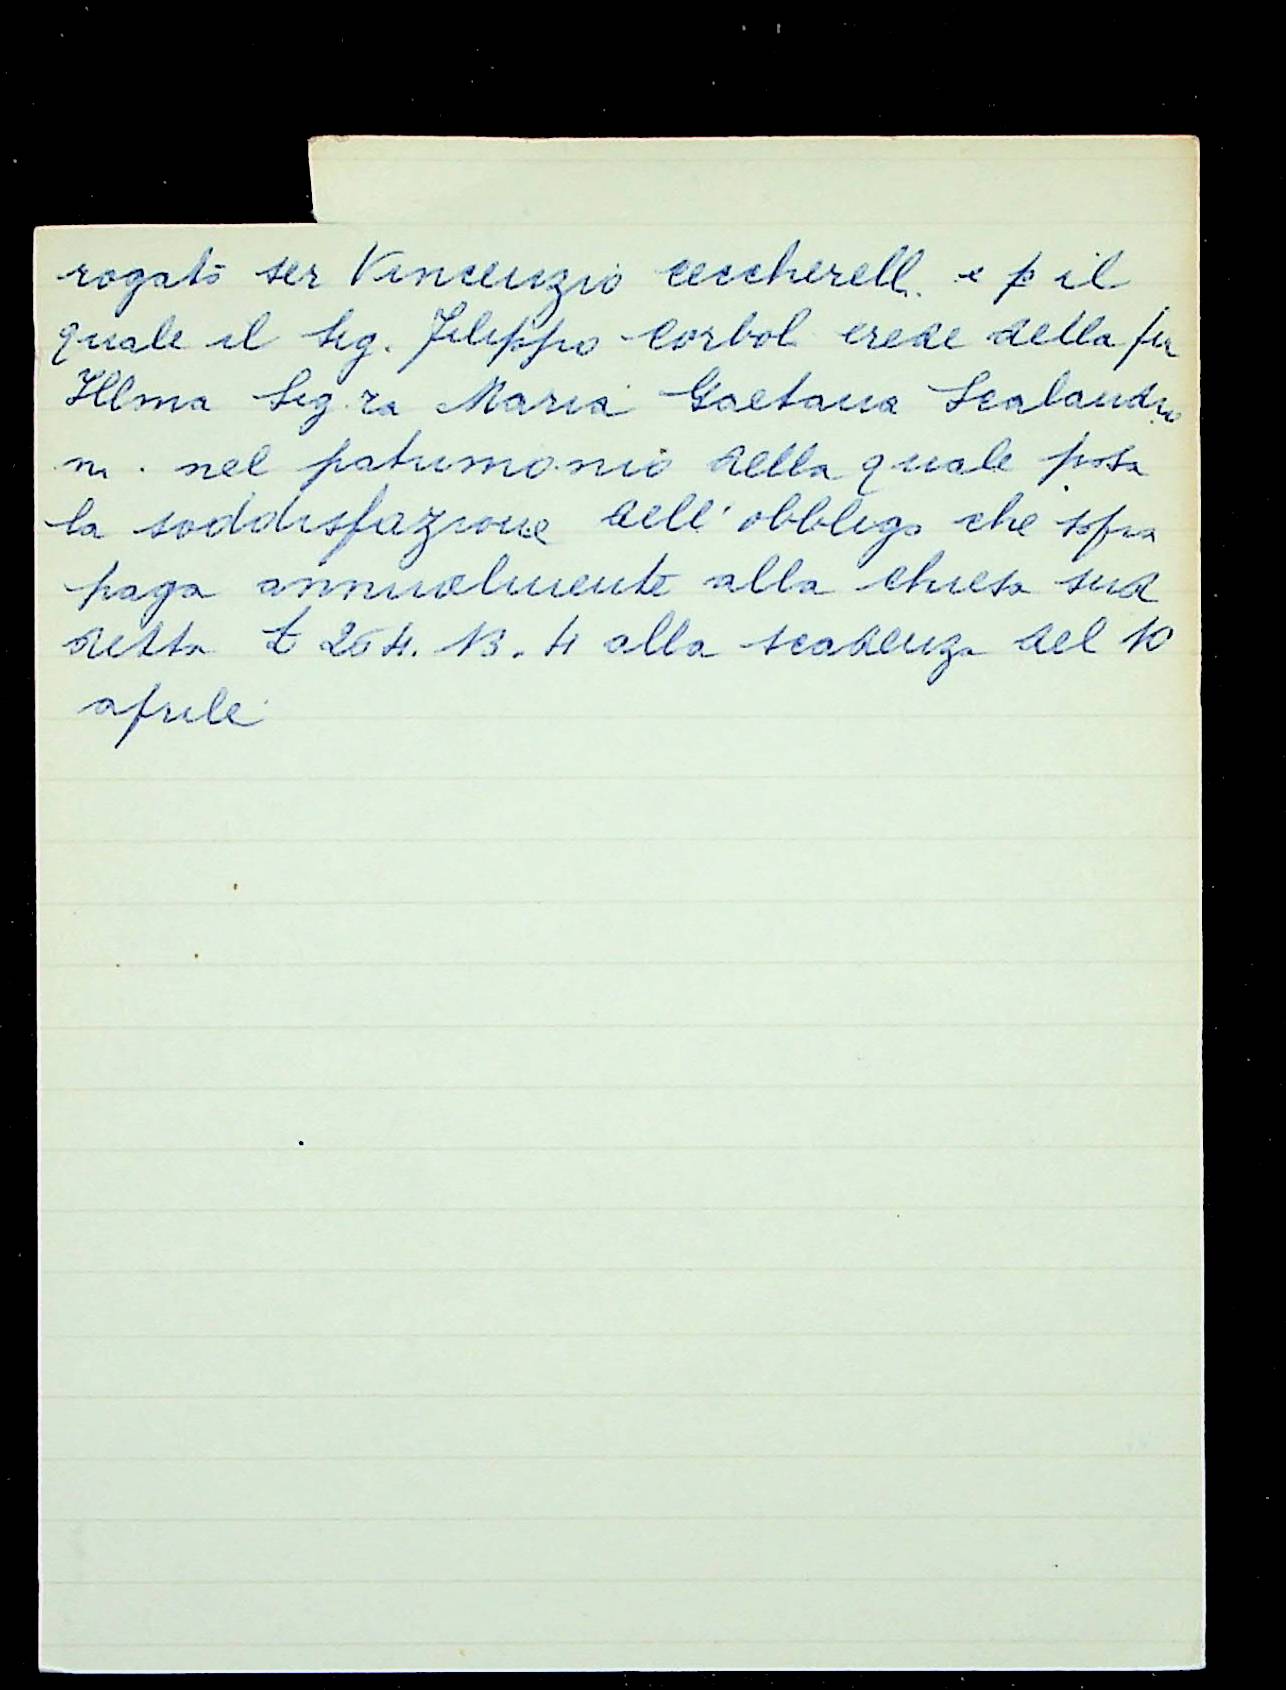 rogato ser Vincenzio Ceccherell. e p il
quale il Sig. Filippo Corbol erede della fu
Illma Sig.ra Maria Gaetana Scalandro
ni. nel patrimonio della quale posa
la soddisfazione dell'obbligo che sopra
paga annualmente alla chiesa sud
detta £ 264. 13. 4 alla scadenza del 10
aprile